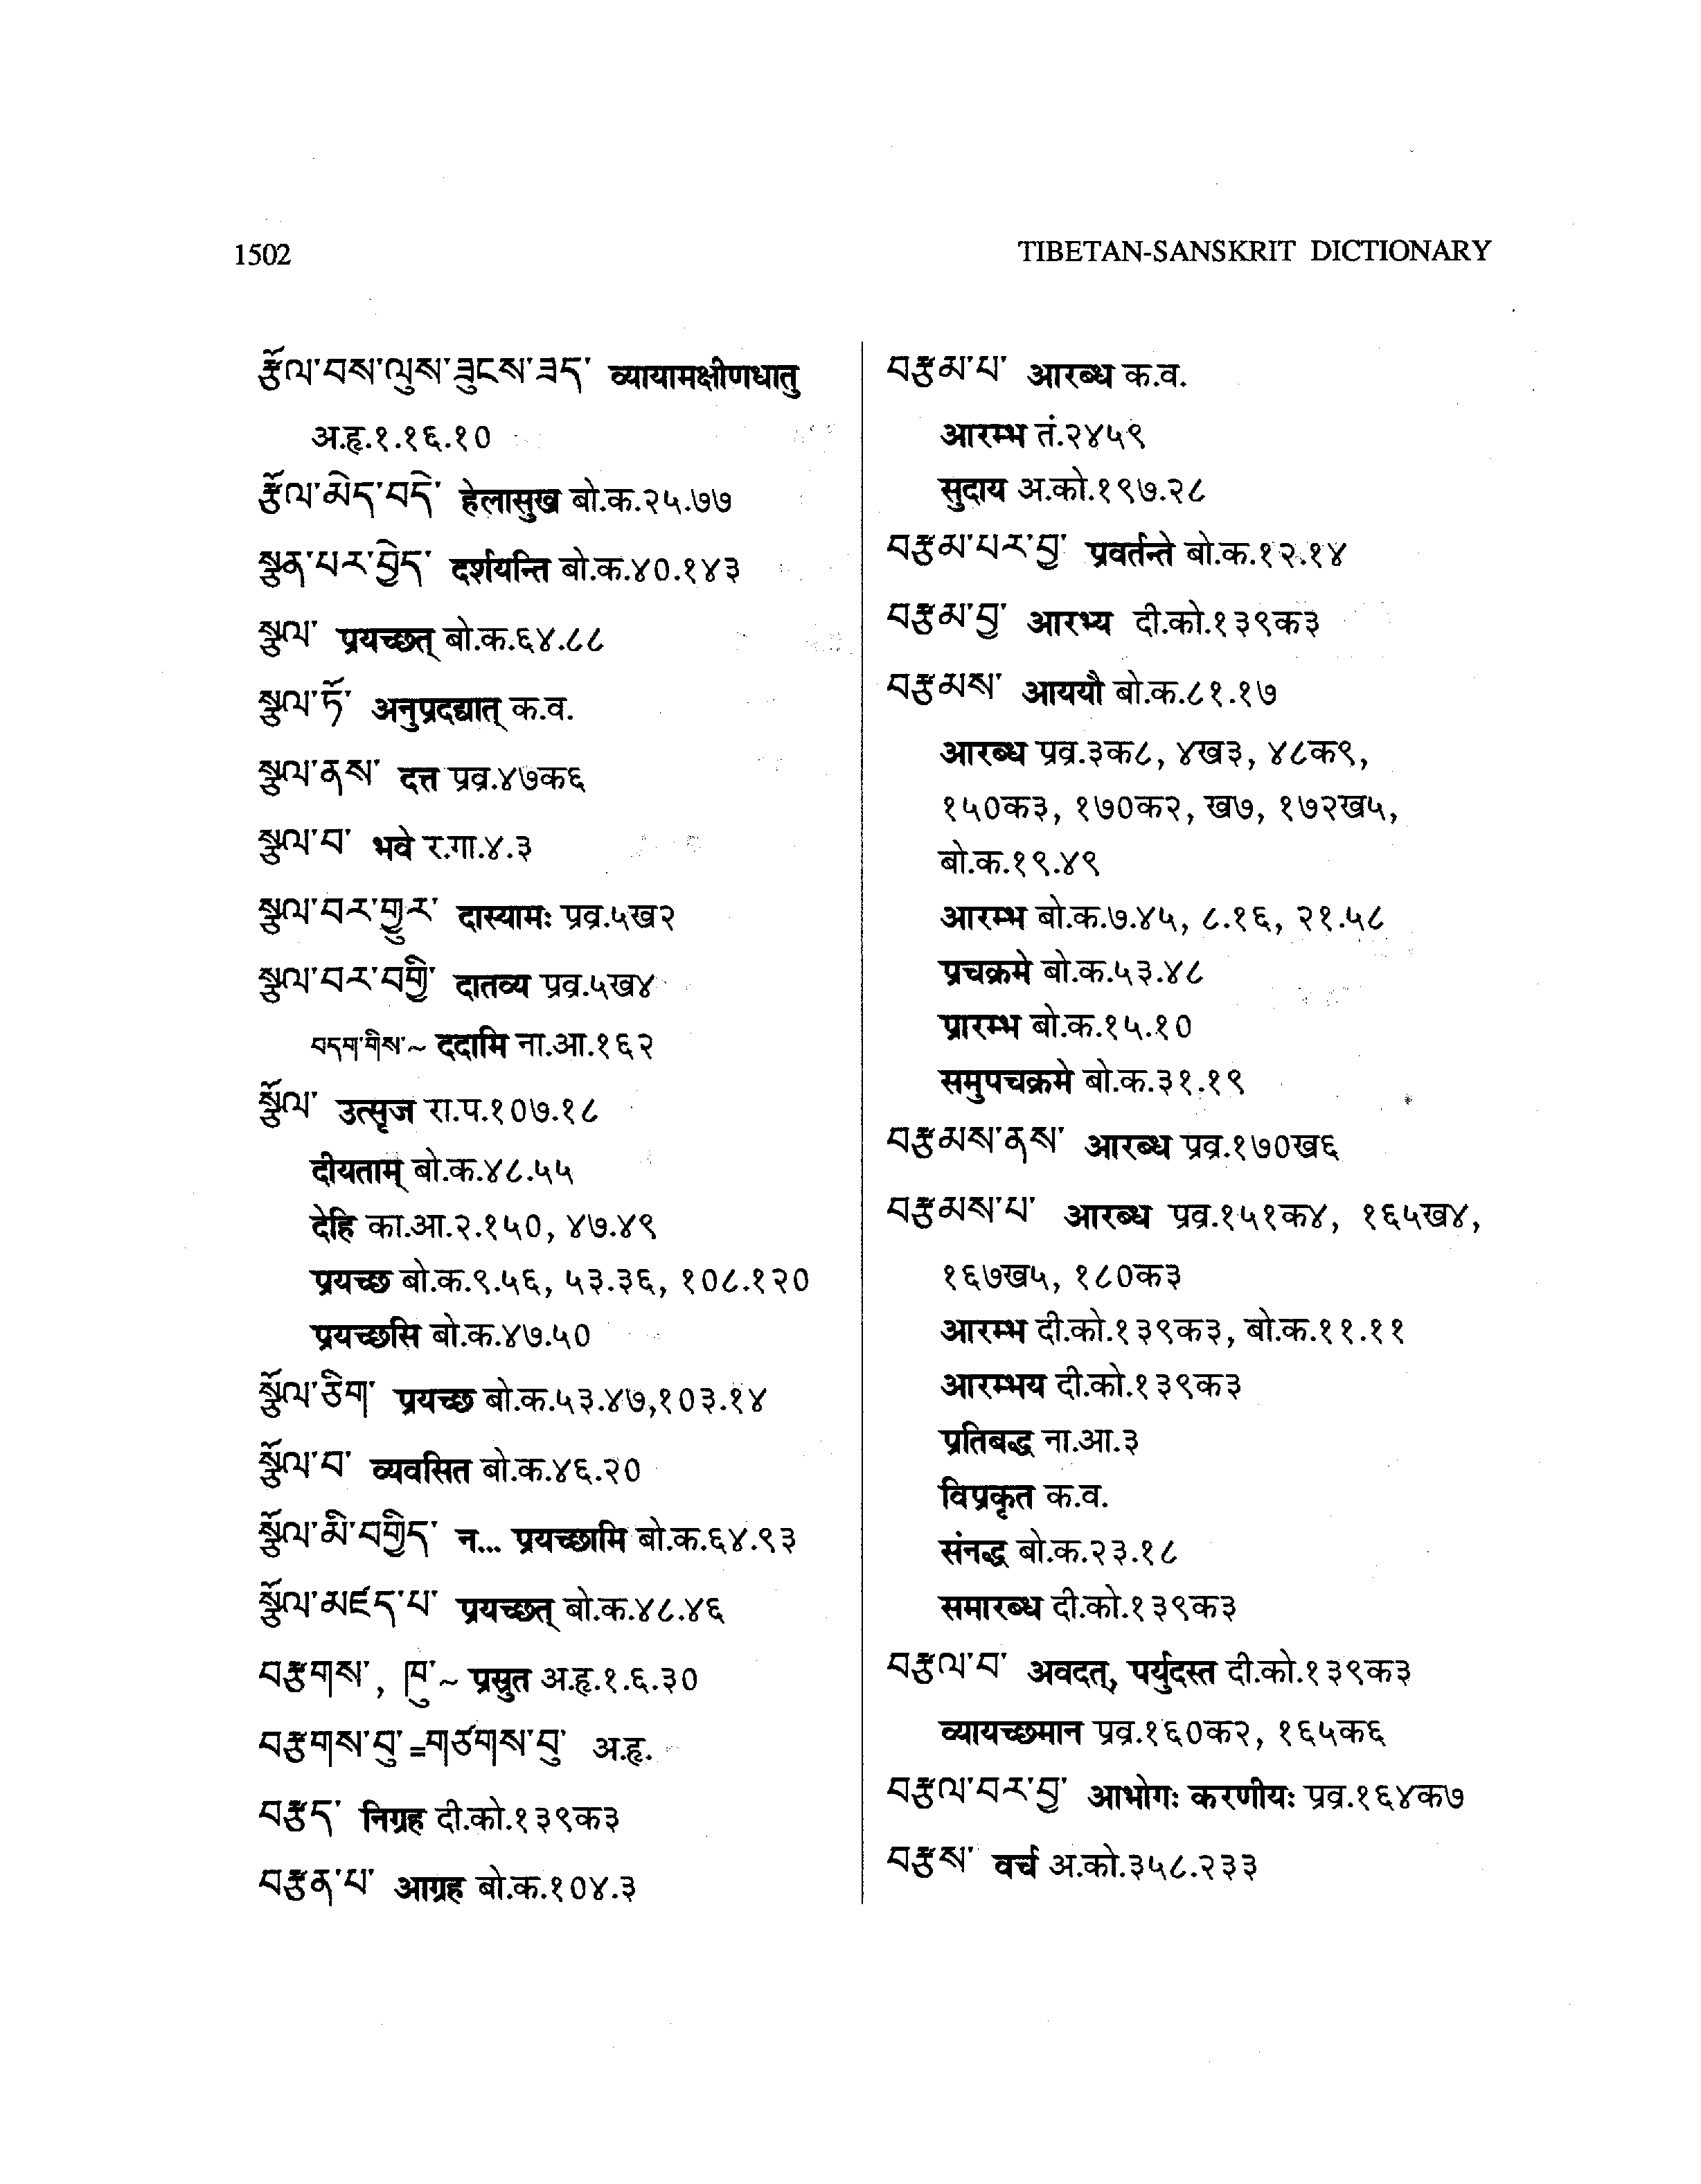 1502
TIBETAN-SANSKRIT DICTIONARY
རྩོལ་བས་ལུས་ཟུངས་ཟད་ व्यायामक्षीणधातु
अ.हृ.१.१६.१०
རྩོལ་མེད་བདེ་ हेलासुख बो.क.२५.७७
སྩུན་པར་བྱེད་ दर्शयन्ति बो.क.४०.१४३
སྩུལ་ प्रयच्छत् बो.क.६४.८८
སྩུལ་ཏོ་ अनुप्रदद्यात् क.व.
སྩུལ་ནས་ दत्त प्रव्र.४७क६
སྩུལ་བ་ भवे र.गा.४.३
སྩུལ་བར་གྱུར་ दास्यामः प्रव्र.५ख२
སྩུལ་བར་བགྱི་ दातव्य प्रव्र.५ख४
བདག་གིས་~ ददामि ना.आ.१६२
སྩོལ་ उत्सृज रा.प.१०७.१८
दीयताम् बो.क.४८.५५
देहि का.आ.२.१५०, ४७.४९
प्रयच्छ बो.क.९.५६, ५३.३६, १०८.१२०
प्रयच्छसि बो.क.४७.५०
སྩོལ་ཅིག་ प्रयच्छ बो.क.५३.४७,१०३.१४
སྩོལ་བ་ व्यवसित बो.क.४६.२०
སྩོལ་མི་བགྱིད་ न... प्रयच्छामि बो.क.६४.९३
སྩོལ་མཛད་པ་ प्रयच्छत् बो.क.४८.४६
བརྩགས་, ཁུ་~ प्रस्रुत अ.हृ.१.६.३०
བརྩགས་བུ་=གཙགས་བུ་ अ.हृ.
བརྩད་ निग्रह दी.को.१३९क३
བརྩན་པ་ आग्रह बो.क.१०४.३
བརྩམ་པ་ आरब्ध क.व.
आरम्भ तं.२४५९
सुदाय अ.को.१९७.२८
བརྩམ་པར་བྱ་ प्रवर्तन्ते बो.क.१२.१४
བརྩམ་བྱ་ आरभ्य दी.को.१३९क३
བརྩམས་ आययौ बो.क.८१.१७
आरब्ध प्रव्र.३क८, ४ख३, ४८क९,
१५०क३, १७०क२, ख७, १७२ख५,
बो.क.१९.४९
आरम्भ बो.क.७.४५, ८.१६, २१.५८
प्रचक्रमे बो.क.५३.४८
प्रारम्भ बो.क.१५.१०
समुपचक्रमे बो.क.३१.१९
བརྩམས་ནས་ आरब्ध प्रव्र.१७०ख६
བརྩམས་པ་ आरब्ध प्रव्र.१५१क४, १६५ख४,
१६७ख५, १८०क३
आरम्भ दी.को.१३९क३, बो.क.११.११
आरम्भय दी.को.१३९क३
प्रतिबद्ध ना.आ.३
विप्रकृत क.व.
संनद्ध बो.क.२३.१८
समारब्ध दी.को.१३९क३
བརྩལ་བ་ अवदत्, पर्युदस्त दी.को.१३९क३
व्यायच्छमान प्रव्र.१६०क२, १६५क६
བརྩལ་བར་བྱ་ आभोगः करणीयः प्रव्र.१६४क७
བརྩས་ वर्च अ.को.३५८.२३३